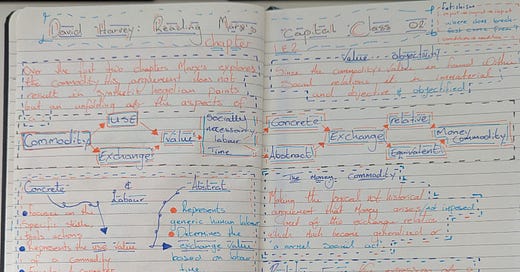 David Harvey: Reading Marx's Capital Class 02
chapter
Over the first two chapters Marx explores
the commodity. His argument does not
result in synthetic Hegelian points
but an unfolding of the aspects of
Commodity
USE
Exchange
Value
Socially
necessary
labour
Time
Concrete & Abstract
Labour
Focuses on the
Specific skills
Represents the use value
of a commodity
Represents
generic human labour
Determines the
exchange value
based on labour
time
Fetishism
where does
Value objectivity
Since the commodities value is found within
Social relations it is immaterial
and objective & objectified
Concrete
Abstract
Exchange
relative
Equivalent
Money
Commodity
The Money Commodity
Making the logical not historical
argument that Money arises not imposed
based on the exchange relation
which has become generalised or
a normal Social act